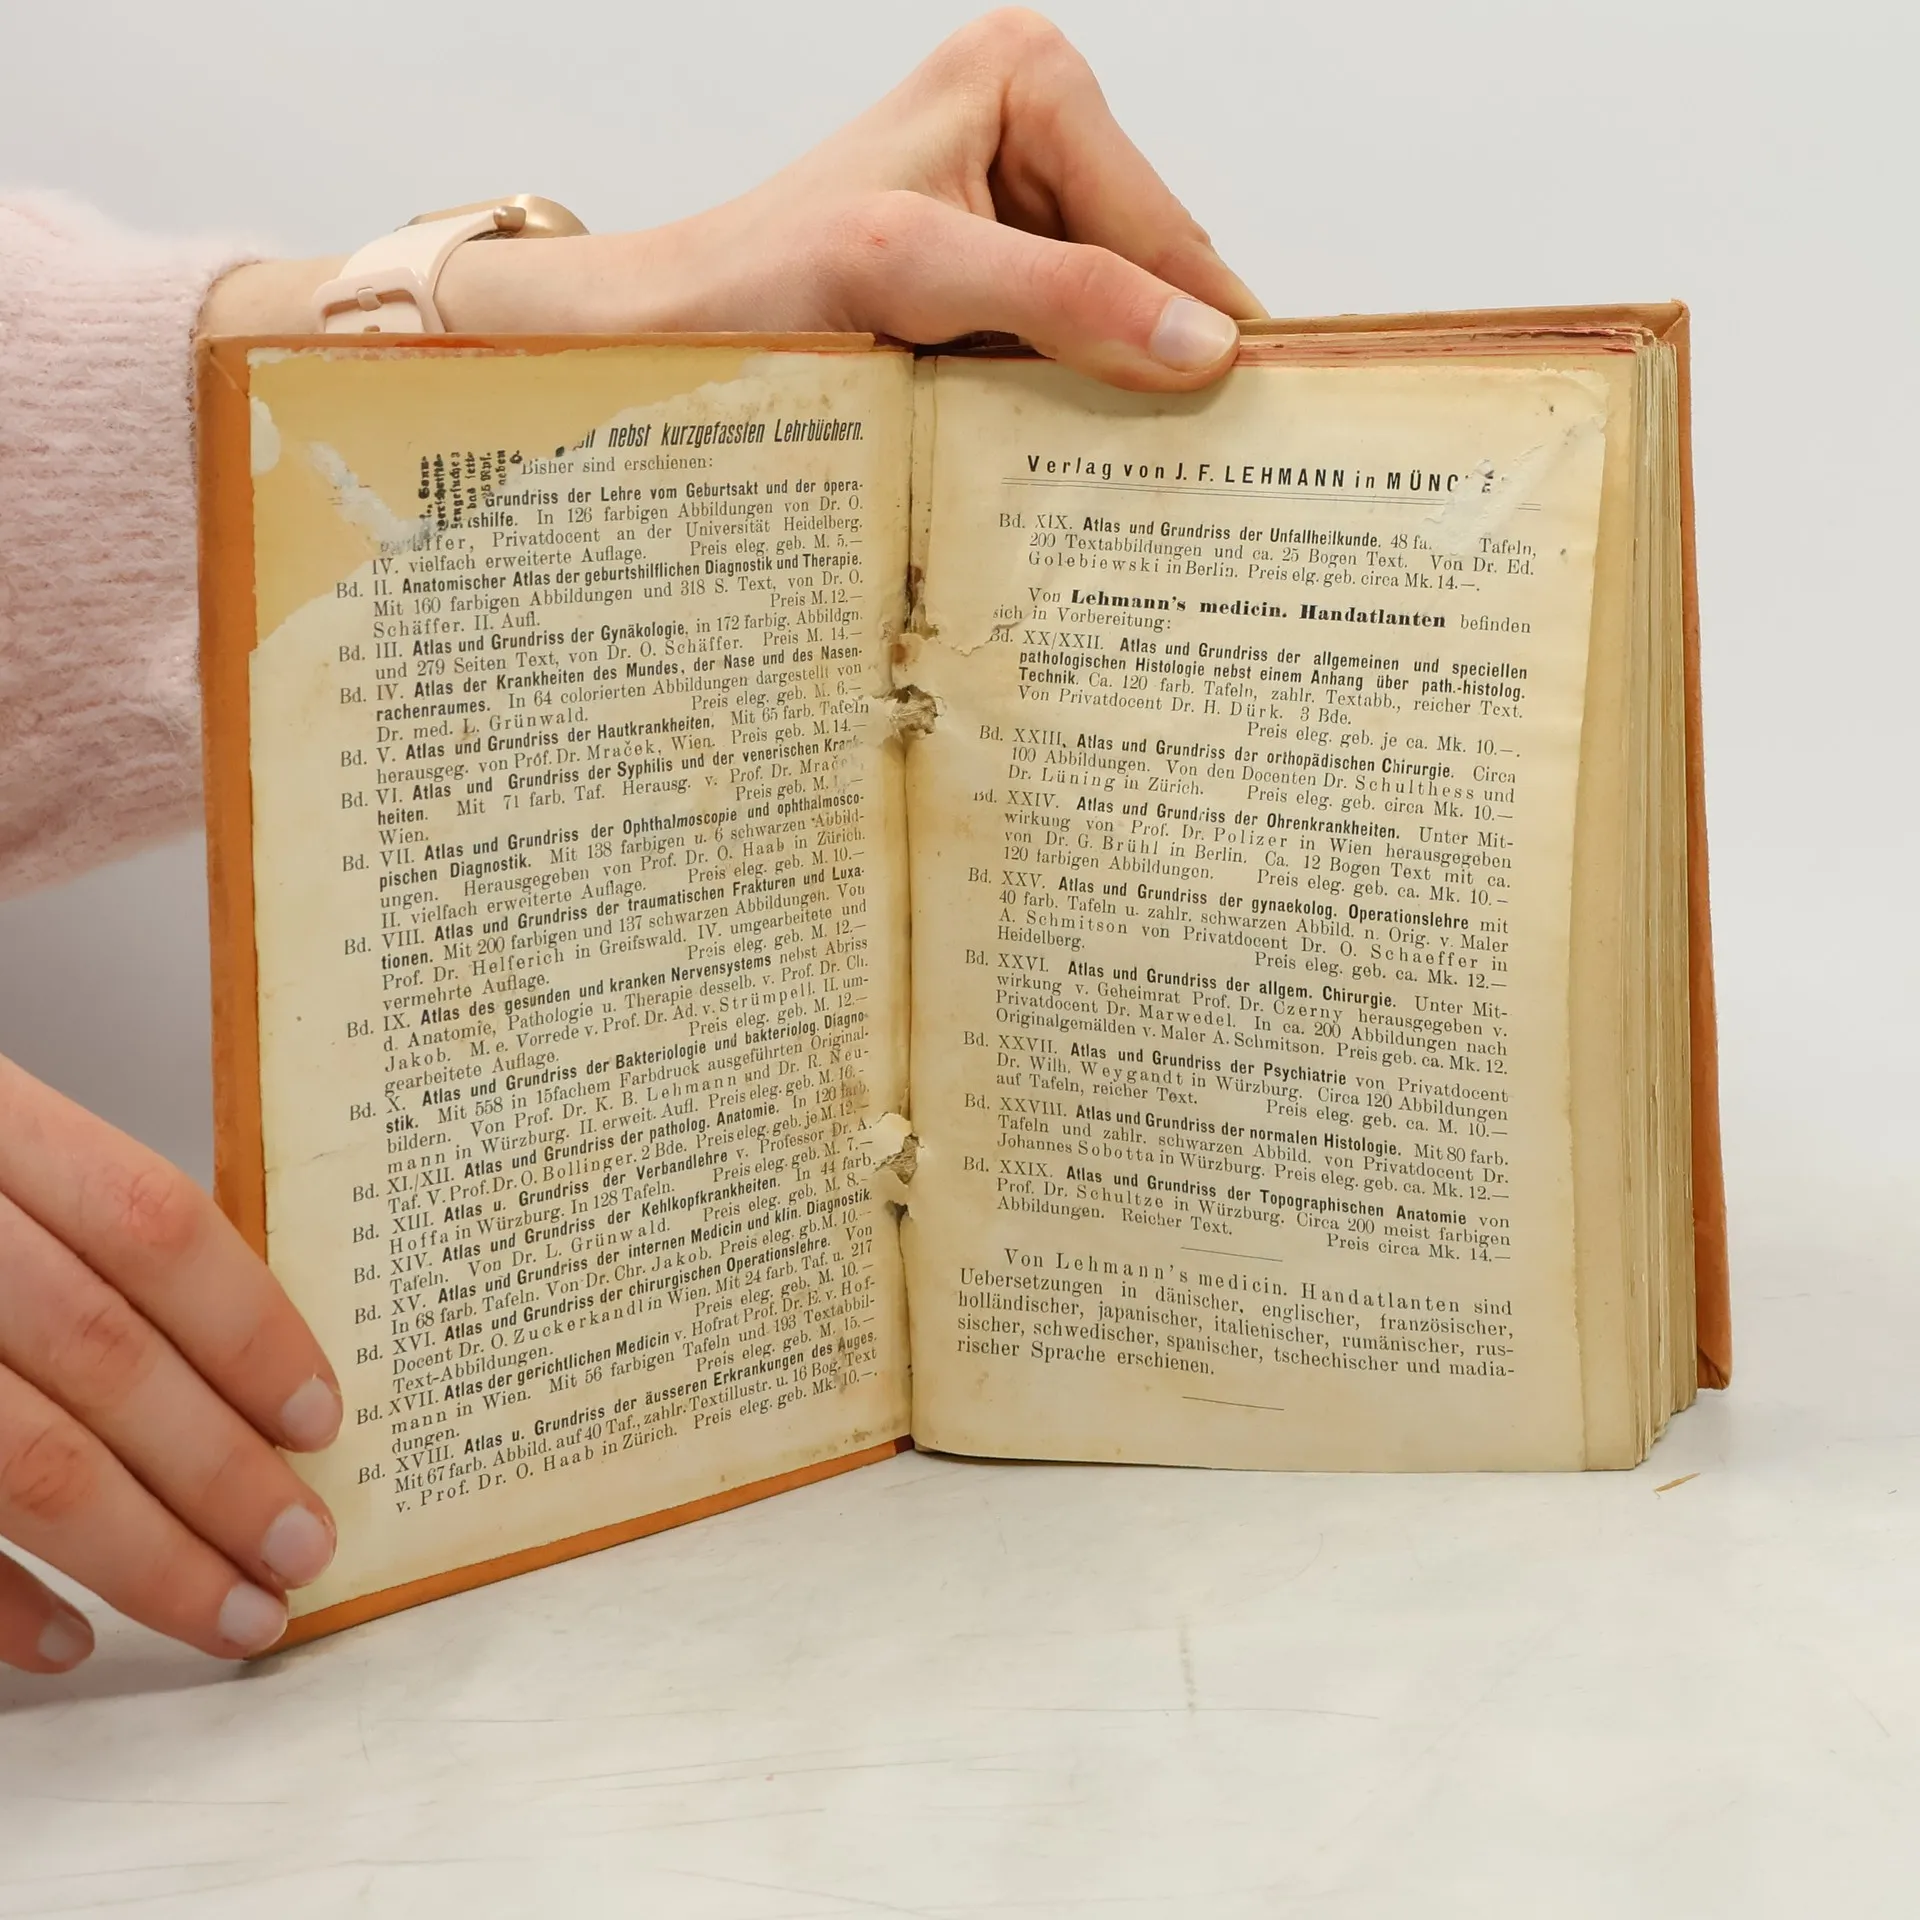 nebst kurzgefassten Lehrbüchern.
Bisher sind erschienen:
Grundriss der Lehre vom Geburtsakt und der opera-
tshilfe. In 126 farbigen Abbildungen von Dr. O.
Privatdocent an der Universität Heidelberg.
IV. vielfach erweiterte Auflage. Preis eleg. geb. M. 5.—
Bd. II. Anatomischer Atlas der geburtshilflichen Diagnostik und Therapie.
Mit 160 farbigen Abbildungen und 318 S. Text, von Dr. O.
Schäffer. II. Aufl. Preis M. 12.—
Bd. III. Atlas und Grundriss der Gynäkologie, in 172 farbig. Abbildgn.
und 279 Seiten Text, von Dr. O. Schäffer. Preis M. 14.—
Bd. IV. Atlas der Krankheiten des Mundes, der Nase und des Nasen-
rachenraumes. In 64 colorierten Abbildungen dargestellt von
Dr. med. L. Grünwald. Preis eleg. geb. M. 6.—
Bd. V. Atlas und Grundriss der Hautkrankheiten. Mit 65 farb. Tafeln
herausgeg. von Prof. Dr. Mraček, Wien. Preis geb. M. 14.—
Bd. VI. Atlas und Grundriss der Syphilis und der venerischen Krank-
heiten. Mit 71 farb. Taf. Herausg. v. Prof. Dr. Mraček,
Wien. Preis geb. M.
Bd. VII. Atlas und Grundriss der Ophthalmoscopie und ophthalmosco-
pischen Diagnostik. Mit 138 farbigen u. 6 schwarzen Abbild-
ungen. Herausgegeben von Prof. Dr. O. Haab in Zürich.
II. vielfach erweiterte Auflage. Preis eleg. geb. M. 10.—
Bd. VIII. Atlas und Grundriss der traumatischen Frakturen und Luxa-
tionen. Mit 200 farbigen und 137 schwarzen Abbildungen. Von
Prof. Dr. Helferich in Greifswald. IV. umgearbeitete und
vermehrte Auflage. Preis eleg. geb. M. 12.—
Bd. IX. Atlas des gesunden und kranken Nervensystems nebst Abriss
d. Anatomie, Pathologie u. Therapie desselb. v. Prof. Dr. Ch.
Jakob. M. e. Vorrede v. Prof. Dr. Ad. v. Strümpell. II. um-
gearbeitete Auflage. Preis eleg. geb. M. 12.—
Bd. X. Atlas und Grundriss der Bakteriologie und bakteriolog. Diagno-
stik. Mit 558 in 15fachem Farbdruck ausgeführten Original-
bildern. Von Prof. Dr. K. B. Lehmann und Dr. R. Neu-
mann in Würzburg. II. erweit. Aufl. Preis eleg. geb. M. 16.-
Bd. XI./XII. Atlas und Grundriss der patholog. Anatomie. In 120 farb.
Taf. V. Prof. Dr. O. Bollinger. 2 Bde. Preis eleg. geb. je M. 12.—
Bd. XIII. Atlas u. Grundriss der Verbandlehre v. Professor Dr. A.
Hoffa in Würzburg. In 128 Tafeln. Preis eleg. geb. M. 7.—
Bd. XIV. Atlas und Grundriss der Kehlkopfkrankheiten. In 44 farb.
Tafeln. Von Dr. L. Grünwald. Preis eleg. geb. M. 8.-
Bd. XV. Atlas und Grundriss der internen Medicin und klin. Diagnostik.
In 68 farb. Tafeln. Von Dr. Chr. Jakob. Preis eleg. gb. M. 10.—
Bd. XVI. Atlas und Grundriss der chirurgischen Operationslehre. Von
Docent Dr. O. Zuckerkandl in Wien. Mit 24 farb. Taf. u. 217
Text-Abbildungen. Preis eleg. geb. M. 10.—
Bd. XVII. Atlas der gerichtlichen Medicin v. Hofrat Prof. Dr. E. v. Hof-
mann in Wien. Mit 56 farbigen Tafeln und 193 Textabbil-
dungen. Preis eleg. geb. M. 15.—
Bd. XVIII. Atlas u. Grundriss der äusseren Erkrankungen des Auges.
Mit 67 farb. Abbild. auf 40 Taf., zahlr. Textillustr. u. 16 Bog. Text
v. Prof. Dr. O. Haab in Zürich. Preis eleg. geb. Mk. 10.—.
Verlag von J. F. LEHMANN in
Bd. XIX. Atlas und Grundriss der Unfallheilkunde. 48 Tafeln,
200 Textabbildungen und ca. 25 Bogen Text. Von Dr. Ed.
Golebiewski in Berlin. Preis elg. geb. circa Mk. 14.—.
Von Lehmann's medicin. Handatlanten befinden
sich in Vorbereitung:
Bd. XX/XXII. Atlas und Grundriss der allgemeinen und speciellen
pathologischen Histologie nebst einem Anhang über path.-histolog.
Technik. Ca. 120 farb. Tafeln, zahlr. Textabb., reicher Text.
Von Privatdocent Dr. H. Dürk. 3 Bde.
Preis eleg. geb. je ca. Mk. 10.—.
Bd. XXIII. Atlas und Grundriss der orthopädischen Chirurgie. Circa
100 Abbildungen. Von den Docenten Dr. Schulthess und
Dr. Lüning in Zürich. Preis eleg. geb. circa Mk. 10.—
Bd. XXIV. Atlas und Grundriss der Ohrenkrankheiten. Unter Mit-
wirkung von Prof. Dr. Polizer in Wien herausgegeben
von Dr. G. Brühl in Berlin. Ca. 12 Bogen Text mit ca.
120 farbigen Abbildungen. Preis eleg. geb. ca. Mk. 10.—
Bd. XXV. Atlas und Grundriss der gynaekolog. Operationslehre mit
40 farb. Tafeln u. zahlr. schwarzen Abbild. n. Orig. v. Maler
A. Schmitson von Privatdocent Dr. O. Schaeffer in
Heidelberg. Preis eleg. geb. ca. Mk. 12.—
Bd. XXVI. Atlas und Grundriss der allgem. Chirurgie. Unter Mit-
wirkung v. Geheimrat Prof. Dr. Czerny herausgegeben v.
Privatdocent Dr. Marwedel. In ca. 200 Abbildungen nach
Originalgemälden v. Maler A. Schmitson. Preis geb. ca. Mk. 12.
Bd. XXVII. Atlas und Grundriss der Psychiatrie von Privatdocent
Dr. Wilh. Weygandt in Würzburg. Circa 120 Abbildungen
auf Tafeln, reicher Text. Preis eleg. geb. ca. M. 10.—
Bd. XXVIII. Atlas und Grundriss der normalen Histologie. Mit 80 farb.
Tafeln und zahlr. schwarzen Abbild. von Privatdocent Dr.
Johannes Sobotta in Würzburg. Preis eleg. geb. ca. Mk. 12.—
Bd. XXIX. Atlas und Grundriss der Topographischen Anatomie von
Prof. Dr. Schultze in Würzburg. Circa 200 meist farbigen
Abbildungen. Reicher Text. Preis circa Mk. 14.—
Von Lehmann's medicin. Handatlanten sind
Uebersetzungen in dänischer, englischer, französischer,
holländischer, japanischer, italienischer, rumänischer, rus-
sischer, schwedischer, spanischer, tschechischer und madia-
rischer Sprache erschienen.